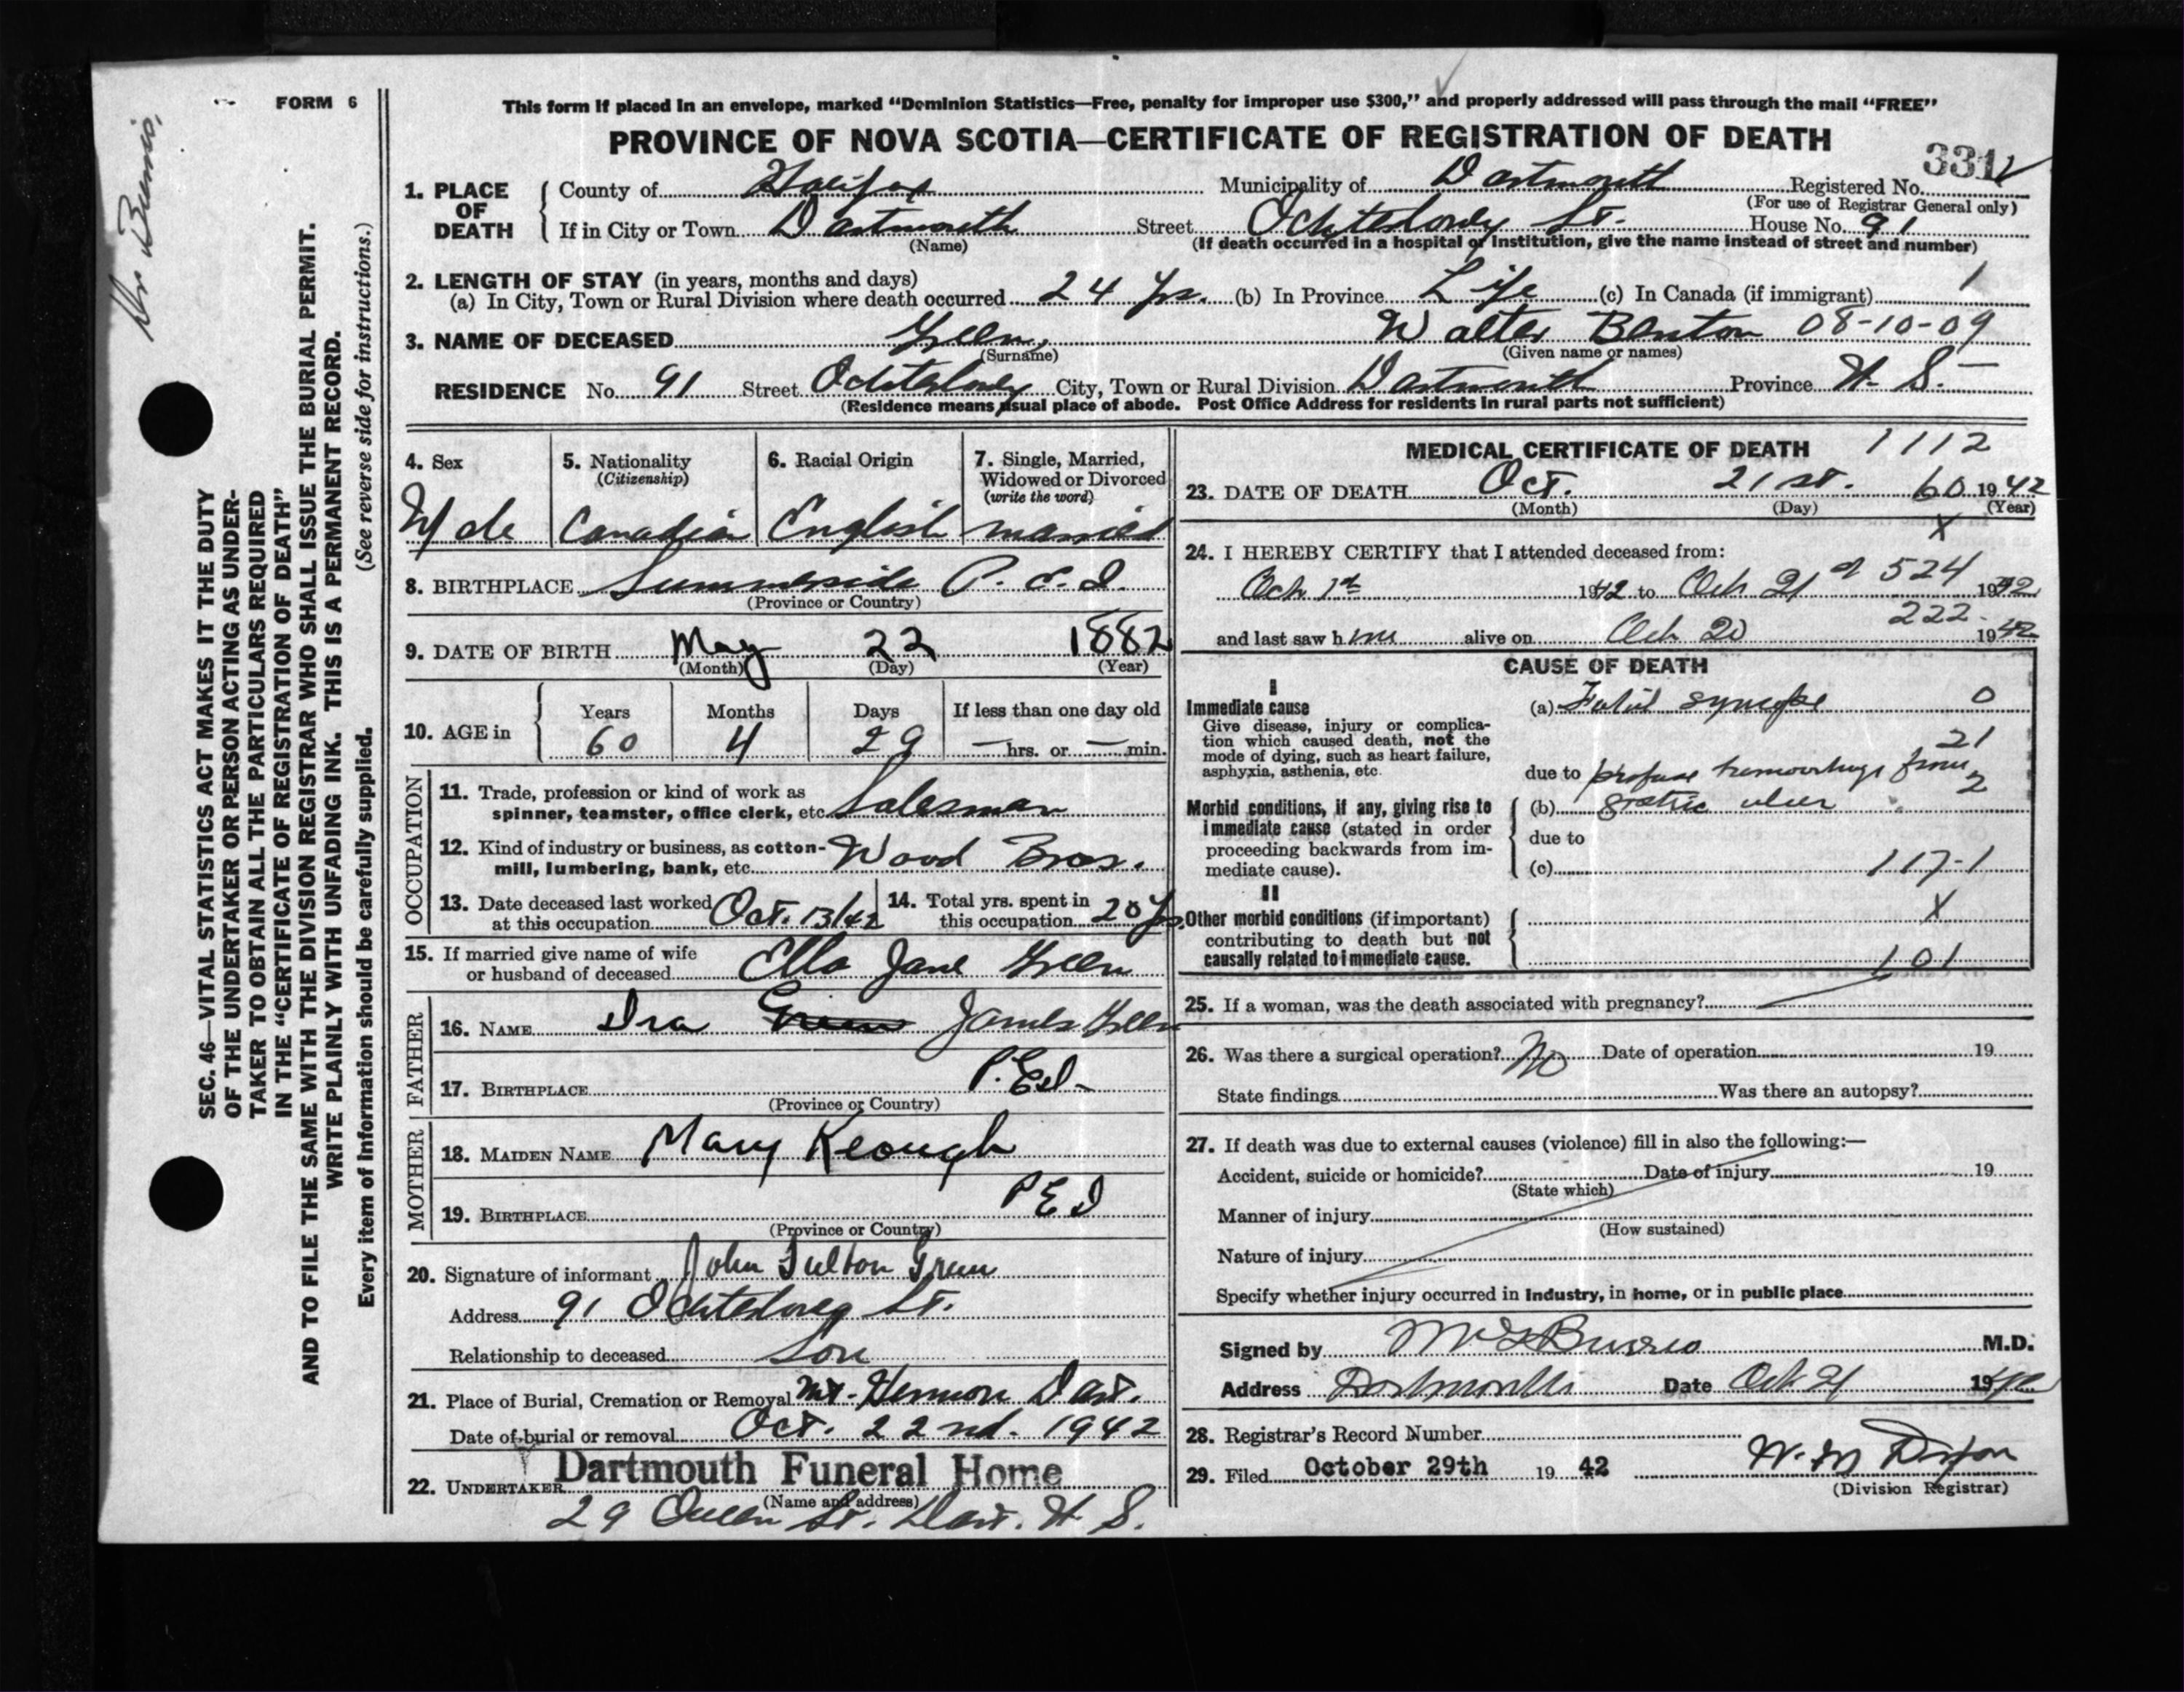 FORM 6
This form if placed in an envelope, marked "Dominion Statistics—Free, penalty for improper use $300," and properly addressed will pass through the mail "FREE"
PROVINCE OF NOVA SCOTIA—CERTIFICATE OF REGISTRATION OF DEATH
331
1. PLACE OF DEATH
County of Halifax Municipality of Dartmouth Registered No.
(For use of Registrar General only)
If in City or Town Dartmouth Street Ochterloney St. House No. 91
(Name) (If death occurred in a hospital or institution, give the name instead of street and number)
2. LENGTH OF STAY (in years, months and days)
(a) In City, Town or Rural Division where death occurred 24 yrs. (b) In Province Life (c) In Canada (if immigrant)
3. NAME OF DECEASED Green, Walter Benton 08-10-09
(Surname) (Given name or names)
RESIDENCE No. 91 Street Ochterloney City, Town or Rural Division Dartmouth Province N. S.
(Residence means usual place of abode. Post Office Address for residents in rural parts not sufficient)
4. Sex Male
5. Nationality (Citizenship) Canadian
6. Racial Origin English
7. Single, Married, Widowed or Divorced (write the word) married
8. BIRTHPLACE Summerside P. E. I.
(Province or Country)
9. DATE OF BIRTH May 22 1882
(Month) (Day) (Year)
10. AGE in Years 60 Months 4 Days 29 If less than one day old — hrs. or — min.
OCCUPATION
11. Trade, profession or kind of work as spinner, teamster, office clerk, etc. Salesman
12. Kind of industry or business, as cotton-mill, lumbering, bank, etc. Wood Bros.
13. Date deceased last worked at this occupation Oct. 13/42
14. Total yrs. spent in this occupation 20 yrs.
15. If married give name of wife or husband of deceased Ella Jane Green
FATHER
16. NAME Ira Green James Green
17. BIRTHPLACE P.E.I.
(Province or Country)
MOTHER
18. MAIDEN NAME Mary Keough
19. BIRTHPLACE P E I
(Province or Country)
20. Signature of informant John Fulton Green
Address 91 Ochterloney St.
Relationship to deceased Son
21. Place of Burial, Cremation or Removal Mt. Hermon Dart.
Date of burial or removal Oct. 22nd. 1942
22. UNDERTAKER Dartmouth Funeral Home
(Name and address)
29 Queen St. Dart. N. S.
MEDICAL CERTIFICATE OF DEATH 1112
23. DATE OF DEATH Oct. 21st. 60 1942
(Month) (Day) (Year)
X
24. I HEREBY CERTIFY that I attended deceased from:
Oct 1st 1942 to Oct 21st 524 1942
222
and last saw him alive on Oct 20 1942
CAUSE OF DEATH
I
Immediate cause
Give disease, injury or complication which caused death, not the mode of dying, such as heart failure, asphyxia, asthenia, etc.
(a) syncope 0
21
due to profuse hemorrhage from
2
Morbid conditions, if any, giving rise to immediate cause (stated in order proceeding backwards from immediate cause).
(b) gastric ulcer
due to
(c) 117-1
II
Other morbid conditions (if important) contributing to death but not causally related to immediate cause.
X
101
25. If a woman, was the death associated with pregnancy?
26. Was there a surgical operation? No Date of operation 19
State findings Was there an autopsy?
27. If death was due to external causes (violence) fill in also the following:—
Accident, suicide or homicide? Date of injury 19
(State which)
Manner of injury
(How sustained)
Nature of injury
Specify whether injury occurred in industry, in home, or in public place
Signed by M.D.
Address Dartmouth Date Oct 21 1942
28. Registrar's Record Number
29. Filed October 29th 19 42
(Division Registrar)
SEC. 46—VITAL STATISTICS ACT MAKES IT THE DUTY
OF THE UNDERTAKER OR PERSON ACTING AS UNDER-
TAKER TO OBTAIN ALL THE PARTICULARS REQUIRED
IN THE "CERTIFICATE OF REGISTRATION OF DEATH"
AND TO FILE THE SAME WITH THE DIVISION REGISTRAR WHO SHALL ISSUE THE BURIAL PERMIT.
WRITE PLAINLY WITH UNFADING INK. THIS IS A PERMANENT RECORD.
Every item of information should be carefully supplied. (See reverse side for instructions.)